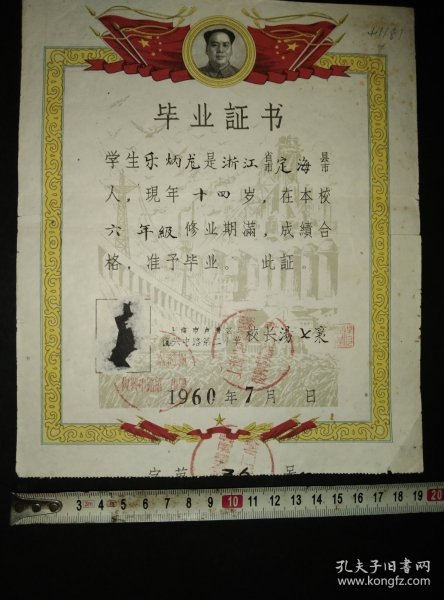 毕业証书
学生乐炳龙是浙江省市定海县市
人，现年十四岁，在本校
六年級修业期滿，成績合
格，准予毕业。此証。
校长湯
1960年7月 日
字第 36 号
3 4 5 6 7 8 9 10 11 12 13 14 15 16 17 18 19 20
孔夫子旧书网
www.kongfz.com